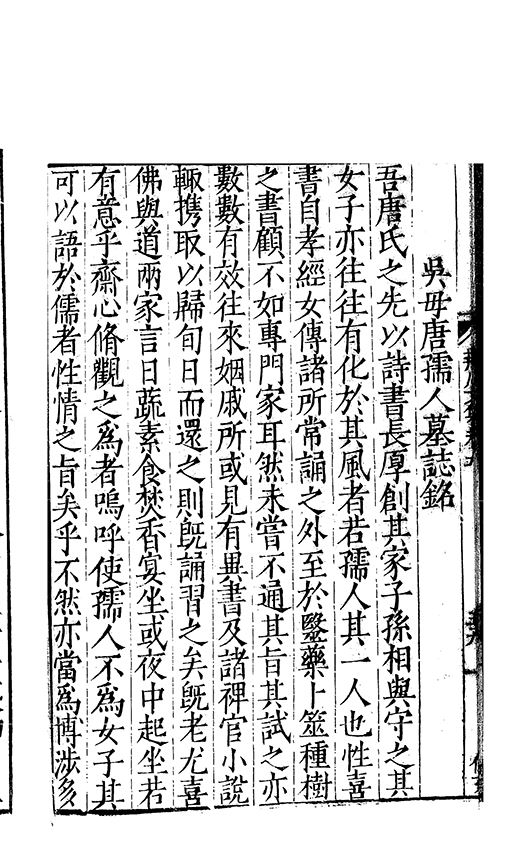 吳母唐孺人墓誌銘
吾唐氏之先以詩書長厚創其家子孫相與守之其
女子亦往往有化於其風者若孺人其一人也性喜
書自孝經女傳諸所常誦之外至於毉藥卜筮種樹
之書顧不如專門家耳然未嘗不通其旨其試之亦
數數有效往來姻戚所或見有異書及諸稗官小說
輙携取以歸旬日而還之則旣誦習之矣旣老尤喜
佛與道兩家言日蔬素食焚香宴坐或夜中起坐若
有意乎齋心脩觀之爲者嗚呼使孺人不爲女子其
可以語於儒者性情之旨矣乎不然亦當爲博涉多